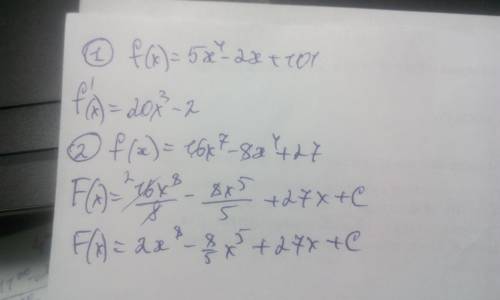 ① f(x)=5x⁴-2x+101
f'(x)=20x³-2
② f(x)=16x⁷-8x⁴+27
F(x)= 2 16x⁸/8 - 8x⁵/5 +27x+C
F(x)=2x⁸-8/5x⁵+27x+C